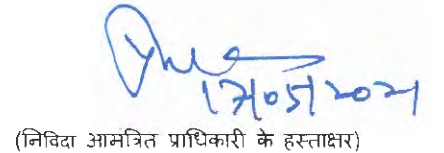 17/05/2021
(निविदा आमंत्रित प्राधिकारी के हस्ताक्षर)